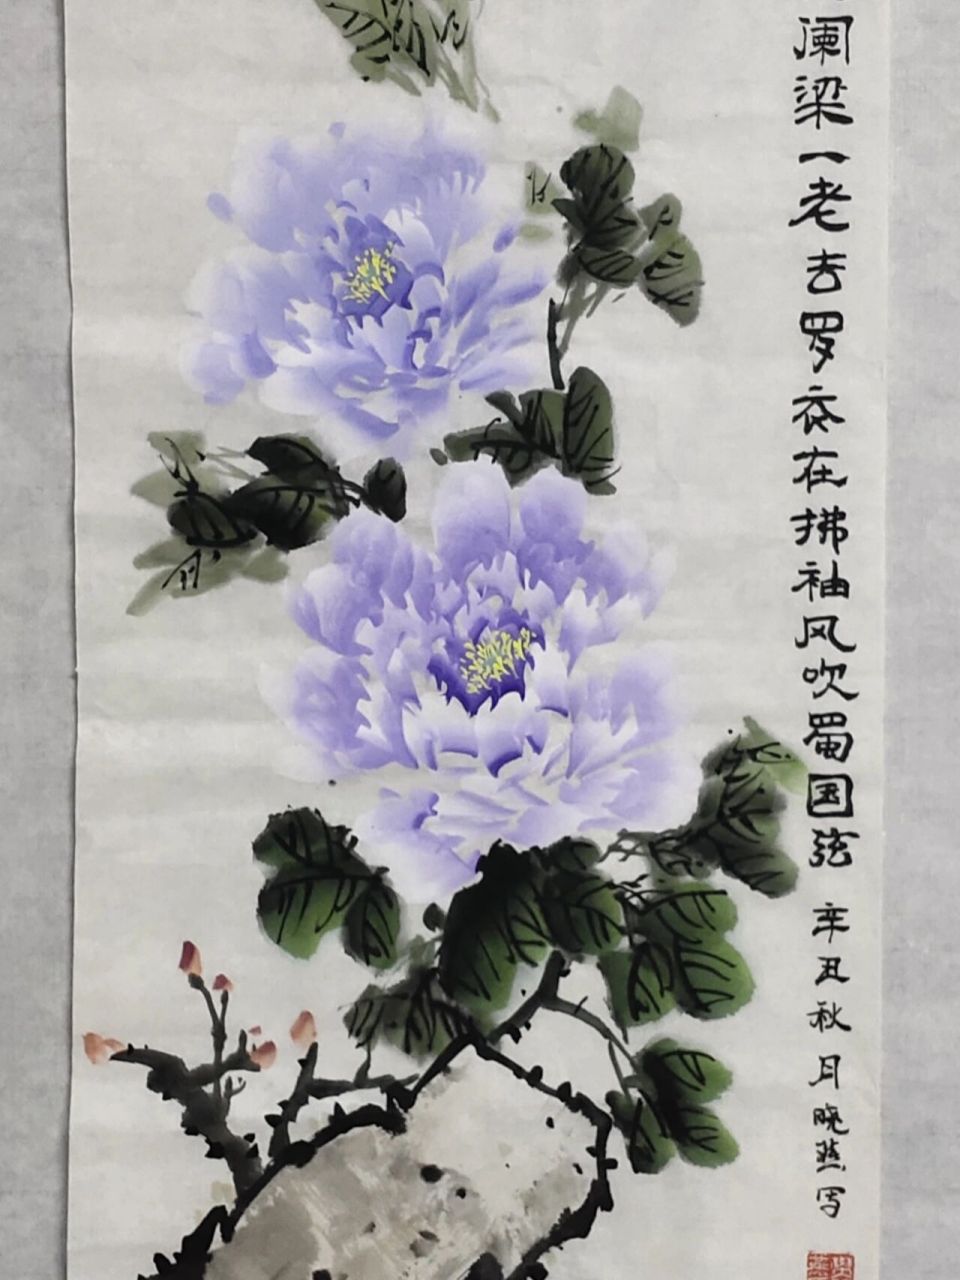 阑梁一老去罗衣在拂袖风吹蜀国弦
辛丑秋月晓燕写